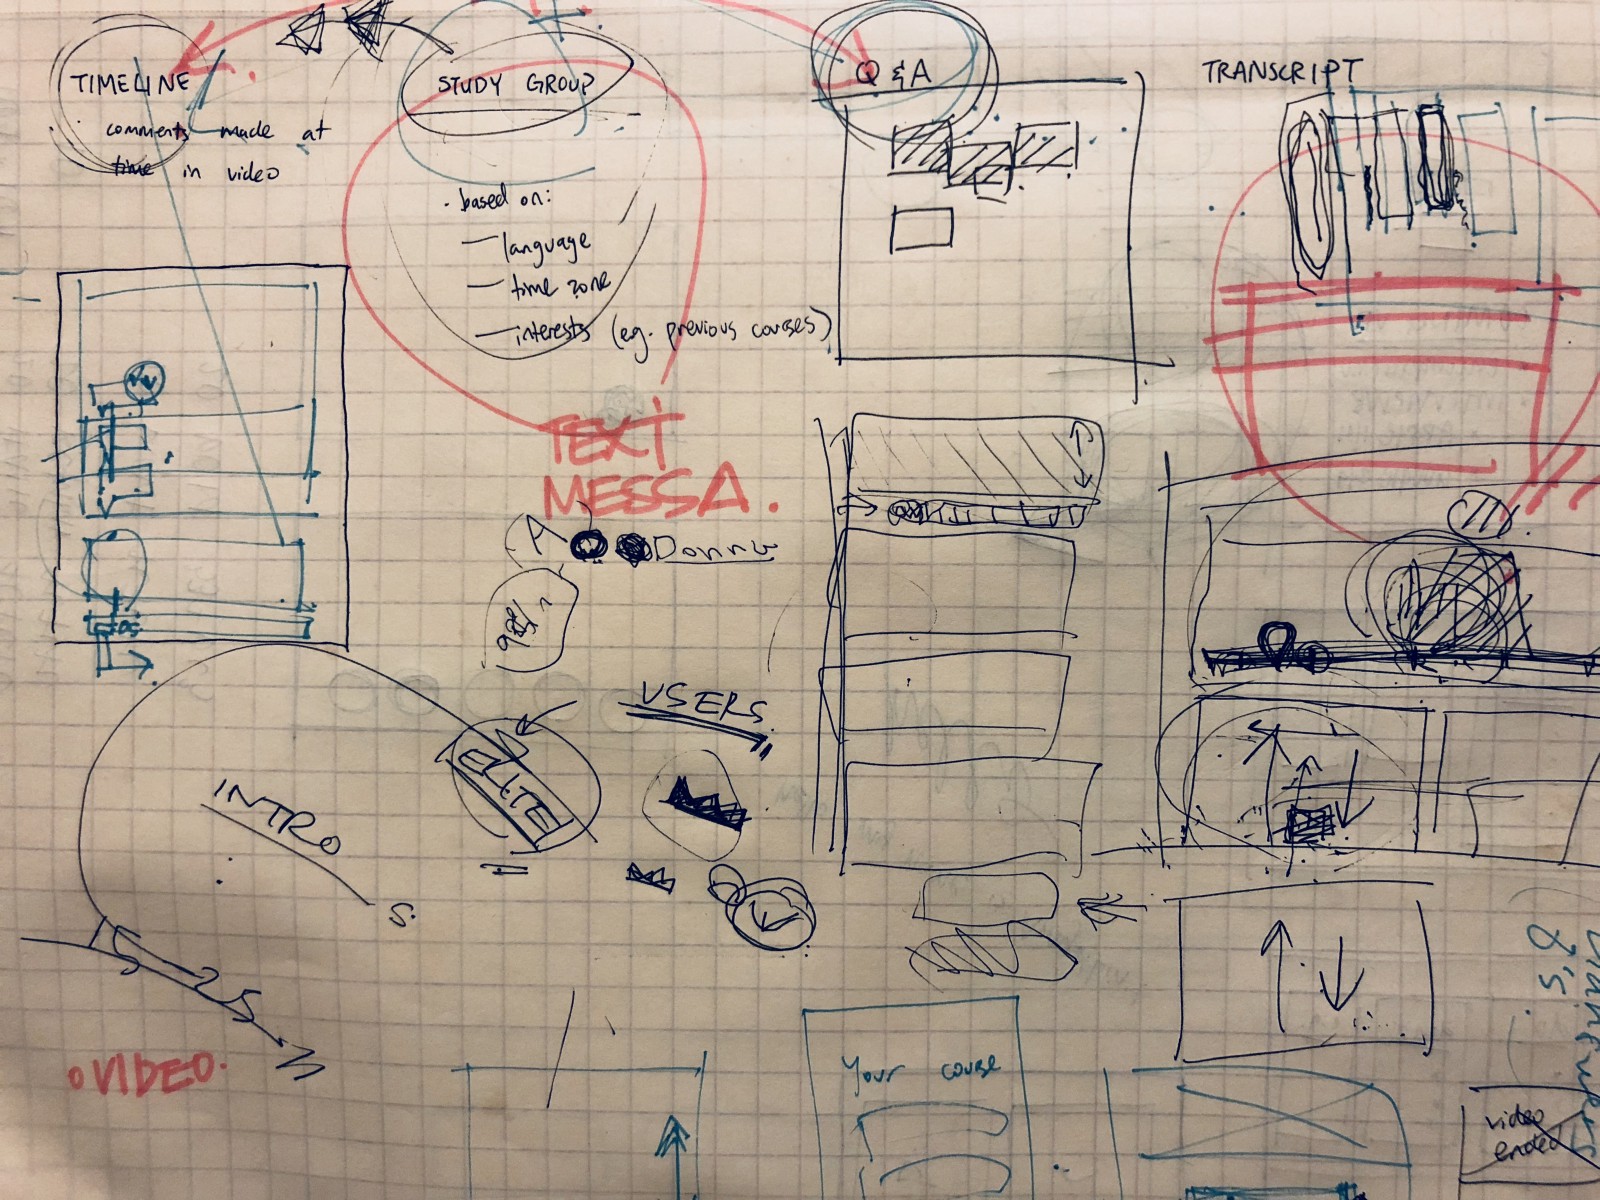 TIMELINE
comments made at
time in video
STUDY GROUP
· based on:
— language
— time zone
— interests (eg. previous courses)
Q & A
TRANSCRIPT
TEXT
MESSA.
A
USERS
ELLITE
INTRO
S.
VIDEO.
Your course
video
ended